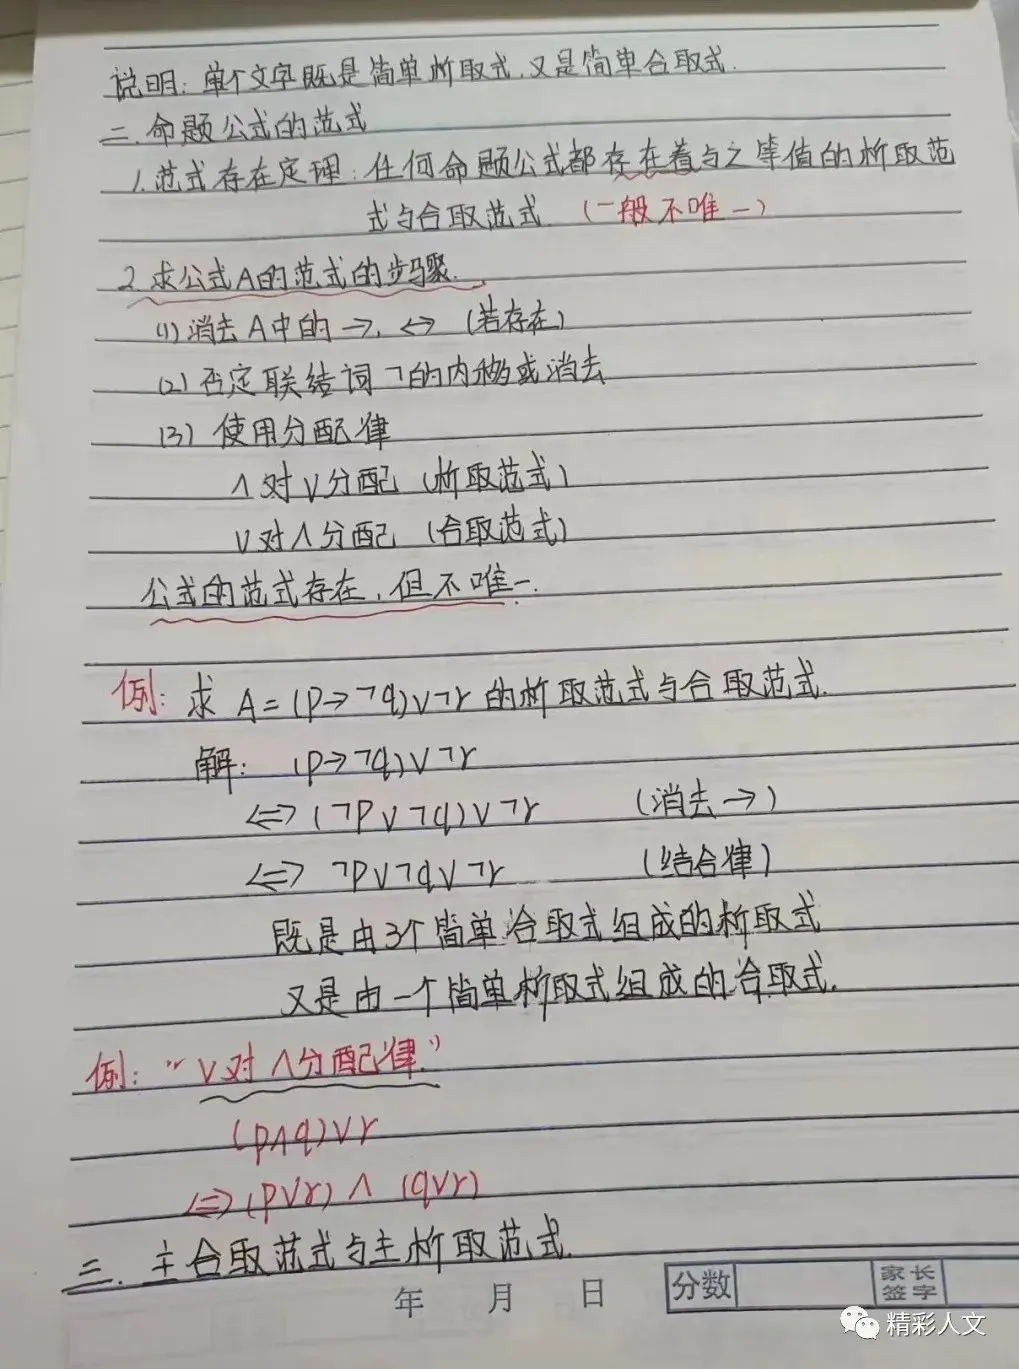 说明：单个文字既是简单析取式，又是简单合取式．
二．命题公式的范式
1.范式存在定理：任何命题公式都存在着与之等值的析取范
式与合取范式．（一般不唯一）
2.求公式A的范式的步骤．
(1)消去A中的→，↔（若存在）
(2)否定联结词¬的内移或消去
(3)使用分配律
∧对∨分配（析取范式）
∨对∧分配（合取范式）
公式的范式存在，但不唯一．
例：求 A=(p→¬q)∨¬r的析取范式与合取范式．
解：(p→¬q)∨¬r
⇔(¬p∨¬q)∨¬r （消去→）
⇔ ¬p∨¬q∨¬r （结合律）
既是由3个简单合取式组成的析取式
又是由一个简单析取式组成的合取式．
例："∨对∧分配律．"
(p∧q)∨r
⇔(p∨r)∧(q∨r)
三．主合取范式与主析取范式．
年 月 日 分数 家长签字
精彩人文